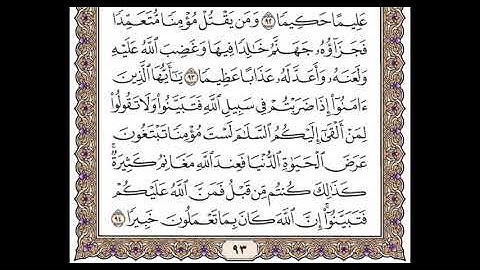 عَلِيمًا حَكِيمًا ٩٢ وَمَن يَقْتُلْ مُؤْمِنًا مُّتَعَمِّدًا
فَجَزَآؤُهُۥ جَهَنَّمُ خَٰلِدًا فِيهَا وَغَضِبَ ٱللَّهُ عَلَيْهِ
وَلَعَنَهُۥ وَأَعَدَّ لَهُۥ عَذَابًا عَظِيمًا ٩٣ يَٰٓأَيُّهَا ٱلَّذِينَ
ءَامَنُوٓا۟ إِذَا ضَرَبْتُمْ فِى سَبِيلِ ٱللَّهِ فَتَبَيَّنُوا۟ وَلَا تَقُولُوا۟
لِمَنْ أَلْقَىٰٓ إِلَيْكُمُ ٱلسَّلَٰمَ لَسْتَ مُؤْمِنًا تَبْتَغُونَ
عَرَضَ ٱلْحَيَوٰةِ ٱلدُّنْيَا فَعِندَ ٱللَّهِ مَغَانِمُ كَثِيرَةٌ ۚ
كَذَٰلِكَ كُنتُم مِّن قَبْلُ فَمَنَّ ٱللَّهُ عَلَيْكُمْ
فَتَبَيَّنُوٓا۟ ۚ إِنَّ ٱللَّهَ كَانَ بِمَا تَعْمَلُونَ خَبِيرًا ٩٤
٩٣